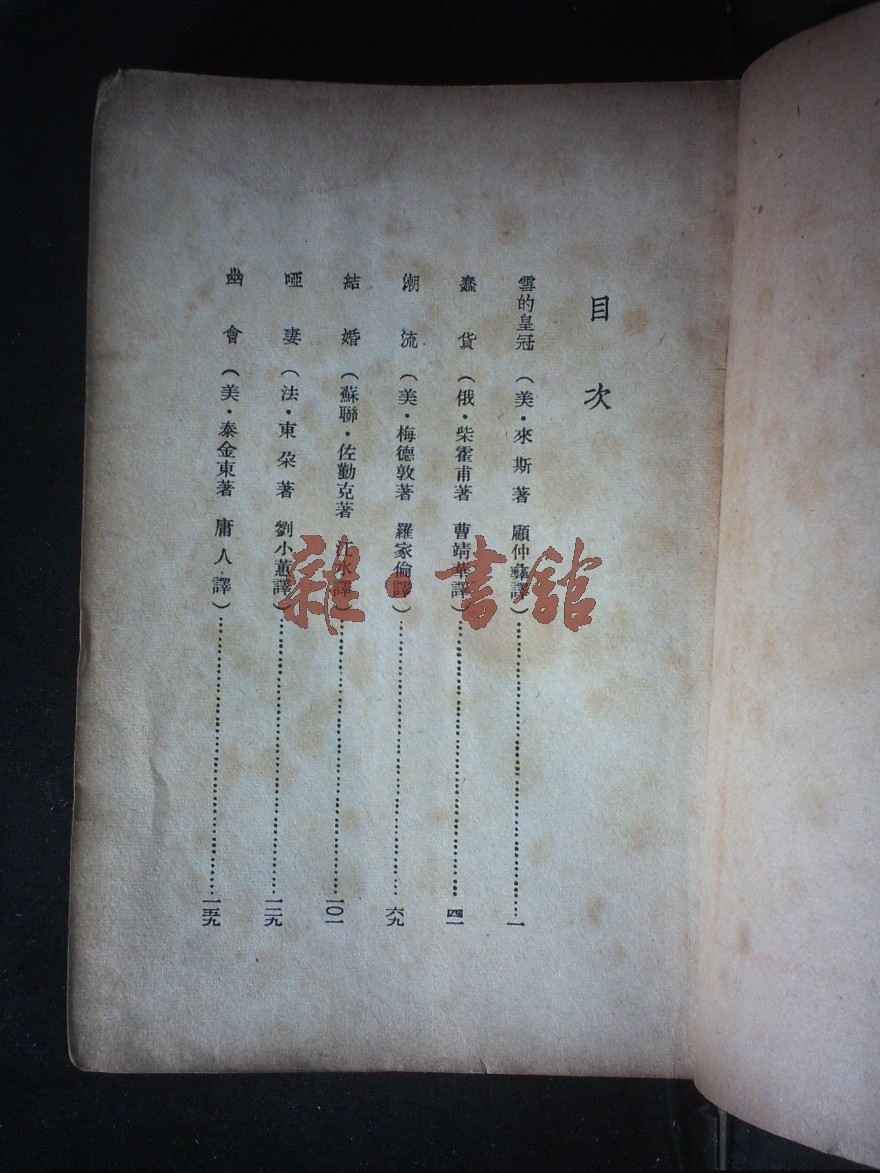 目次
雪的皇冠（美・來斯著 顧仲彝譯）…………一
蠢貨（俄・柴霍甫著 曹靖華譯）…………四一
潮流（美・梅德敦著 羅家倫譯）…………六九
結婚（蘇聯・佐勤克著 江水譯）…………一〇一
啞妻（法・東朵著 劉小蕙譯）…………一二九
幽會（美・泰金東著 庸人譯）…………一五九
雜・書館